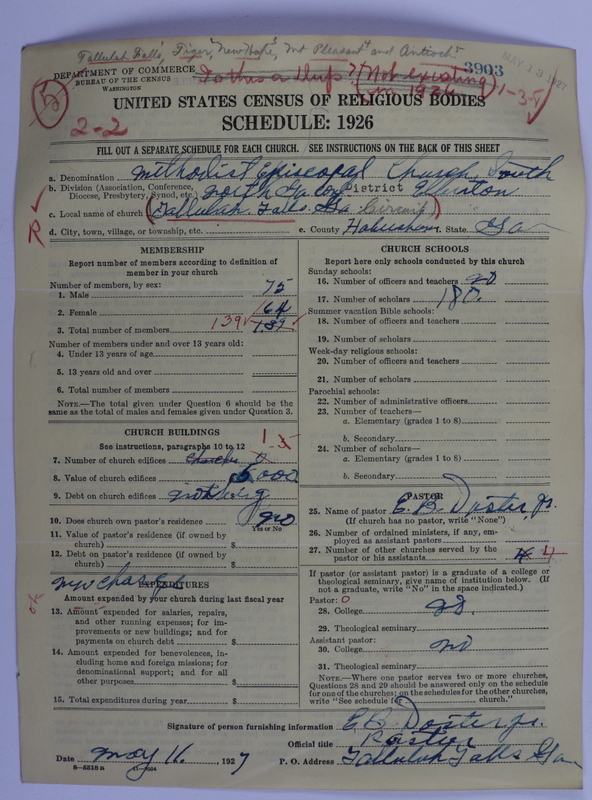 Tallulah Falls, Tiger, New Hope, Mt Pleasant and Antioch
3903
MAY 18 1927
DEPARTMENT OF COMMERCE
BUREAU OF THE CENSUS
WASHINGTON
(Not existing in 1926
1-3-5
5
2-2
UNITED STATES CENSUS OF RELIGIOUS BODIES
SCHEDULE: 1926
FILL OUT A SEPARATE SCHEDULE FOR EACH CHURCH. SEE INSTRUCTIONS ON THE BACK OF THIS SHEET
a. Denomination Methodist Episcopal Church, South
b. Division (Association, Conference, Diocese, Presbytery, Synod, etc.) North District Elberton
c. Local name of church (Tallulah Falls Ga Circuit)
R
d. City, town, village, or township, etc.
e. County Habersham f. State Ga
MEMBERSHIP
Report number of members according to definition of
member in your church
Number of members, by sex:
1. Male 75
2. Female 64
3. Total number of members 139 139
Number of members under and over 13 years old:
4. Under 13 years of age
5. 13 years old and over
6. Total number of members
NOTE.—The total given under Question 6 should be the
same as the total of males and females given under Question 3.
CHURCH BUILDINGS
See instructions, paragraphs 10 to 12
7. Number of church edifices
8. Value of church edifices 5000
9. Debt on church edifices
10. Does church own pastor's residence no
Yes or No
11. Value of pastor's residence (if owned by
church) $
12. Debt on pastor's residence (if owned by
church) $
EXPENDITURES
Amount expended by your church during last fiscal year
13. Amount expended for salaries, repairs,
and other running expenses; for im-
provements or new buildings; and for
payments on church debt $
14. Amount expended for benevolences, in-
cluding home and foreign missions; for
denominational support; and for all
other purposes $
15. Total expenditures during year $
CHURCH SCHOOLS
Report here only schools conducted by this church
Sunday schools:
16. Number of officers and teachers 20
17. Number of scholars 180
Summer vacation Bible schools:
18. Number of officers and teachers
19. Number of scholars
Week-day religious schools:
20. Number of officers and teachers
21. Number of scholars
Parochial schools:
22. Number of administrative officers
23. Number of teachers—
a. Elementary (grades 1 to 8)
b. Secondary
24. Number of scholars—
a. Elementary (grades 1 to 8)
b. Secondary
PASTOR
25. Name of pastor E. B. Doster Jr.
(If church has no pastor, write "None")
26. Number of ordained ministers, if any, em-
ployed as assistant pastors
27. Number of other churches served by the
pastor or his assistants 4
If pastor (or assistant pastor) is a graduate of a college or
theological seminary, give name of institution below. (If
not a graduate, write "No" in the space indicated.)
Pastor: 0
28. College no
29. Theological seminary
Assistant pastor:
30. College no
31. Theological seminary
NOTE.—Where one pastor serves two or more churches,
Questions 28 and 29 should be answered only on the schedule
for one of the churches; on the schedules for the other churches,
write "See schedule for church."
Signature of person furnishing information E. B. Doster Jr.
Official title Pastor
Date May 16 1927 P. O. Address Tallulah Falls Ga
8—5518a 11—9604